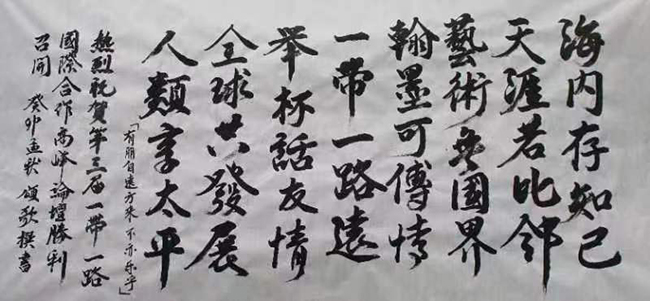 海内存知己
天涯若比邻
藝術無國界
翰墨可傳情
一帶一路遠
举杯話友情
全球共發展
人類享太平
「有朋自遠方来 不亦乐乎」
热烈祝贺第三届一帶一路
國際合作高峰論壇勝利
召開 癸卯孟秋 頌歌撰書